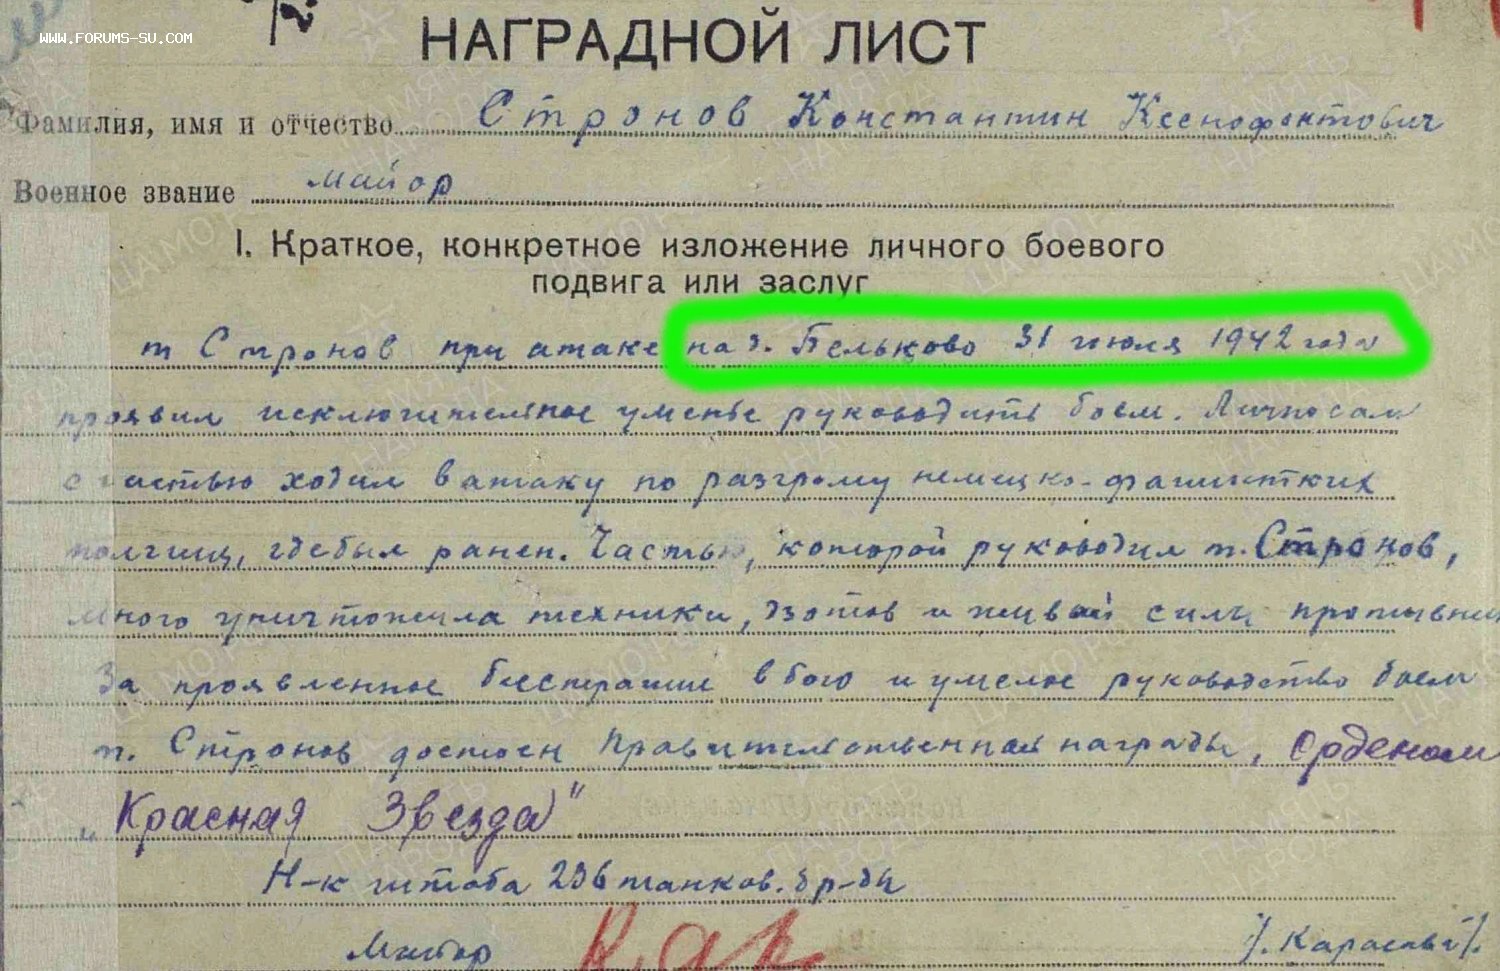 www.forums-su.com
НАГРАДНОЙ ЛИСТ
Фамилия, имя и отчество Стронов Константин Ксенофонтович
Военное звание майор
I. Краткое, конкретное изложение личного боевого
подвига или заслуг
т Стронов при атаке на д. Бельково 31 июля 1942 года
проявил исключительное уменье руководить боем. Лично сам
с частью ходил в атаку по разгрому немецко-фашистких
полчищ, где был ранен. Частью, которой руководил т. Стронов,
много уничтожила техники, дзотов и живой силы противник
За проявленное бесстрашие в бою и умелое руководство боем
т. Стронов достоен правительственной награды, орденом
„Красная Звезда"
Н-к штаба 236 танков. бр-ды
Майор /. Карасевы /.